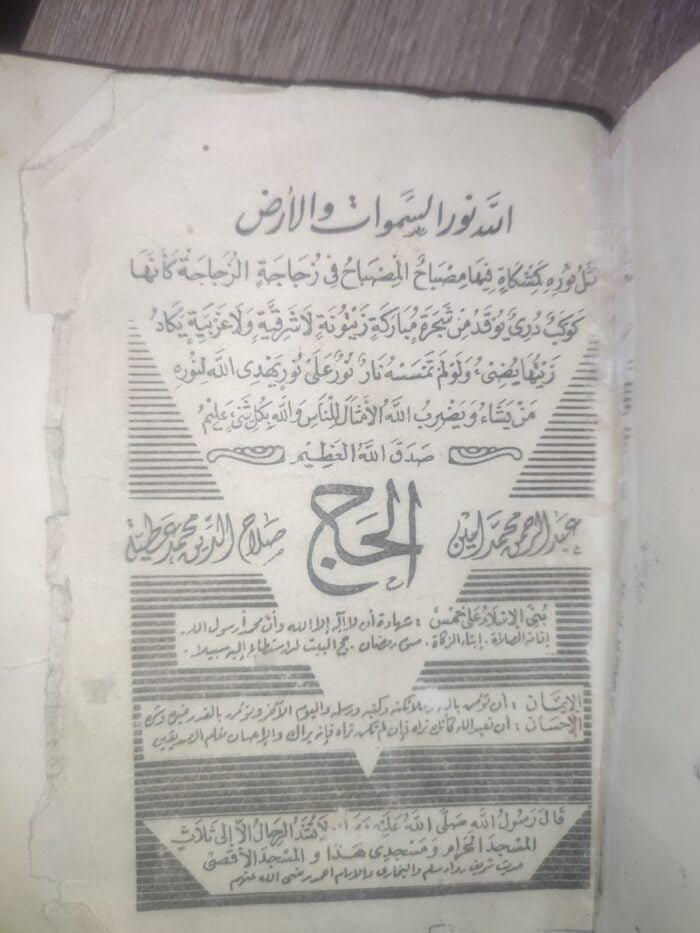 الله نور السموات والأرض
مَثَلُ نُورِهِ كَمِشْكَاةٍ فِيهَا مِصْبَاحٌ الْمِصْبَاحُ فِي زُجَاجَةٍ الزُّجَاجَةُ كَأَنَّهَا
كَوْكَبٌ دُرِّيٌّ يُوقَدُ مِن شَجَرَةٍ مُبَارَكَةٍ زَيْتُونَةٍ لَا شَرْقِيَّةٍ وَلَا غَرْبِيَّةٍ يَكَادُ
زَيْتُهَا يُضِيءُ وَلَوْ لَمْ تَمْسَسْهُ نَارٌ نُورٌ عَلَىٰ نُورٍ يَهْدِي اللَّهُ لِنُورِهِ
مَن يَشَاءُ وَيَضْرِبُ اللَّهُ الْأَمْثَالَ لِلنَّاسِ وَاللَّهُ بِكُلِّ شَيْءٍ عَلِيمٌ
صَدَقَ اللَّهُ الْعَظِيمُ
عبد الرحمن محمد أمين
الحج
صلاح الدين محمد عطية
بُنِيَ الإِسْلَامُ عَلَى خَمْسٍ : شهادة أن لا إله إلا الله وأن محمداً رسول الله .
إقامة الصلاة . إيتاء الزكاة . صوم رمضان . حج البيت لمن استطاع إليه سبيلا .
الإيمَان : أن تؤمن بالله وملائكته وكتبه ورسله واليوم الآخر وتؤمن بالقدر خيره وشره
الإحْسَان : أن تعبد الله كأنك تراه فإن لم تكن تراه فإنه يراك والإحسان مقام الصديقين
قَالَ رَسُولُ اللَّهِ صَلَّى اللَّهُ عَلَيْهِ لَا تُشَدُّ الرِّحَالُ إِلَّا إِلَى ثَلَاثٍ
المَسْجِدِ الْحَرَامِ وَمَسْجِدِي هَذَا وَالْمَسْجِدِ الْأَقْصَى
حديث شريف رواه مسلم والبخاري والإمام أحمد رضى الله عنهم